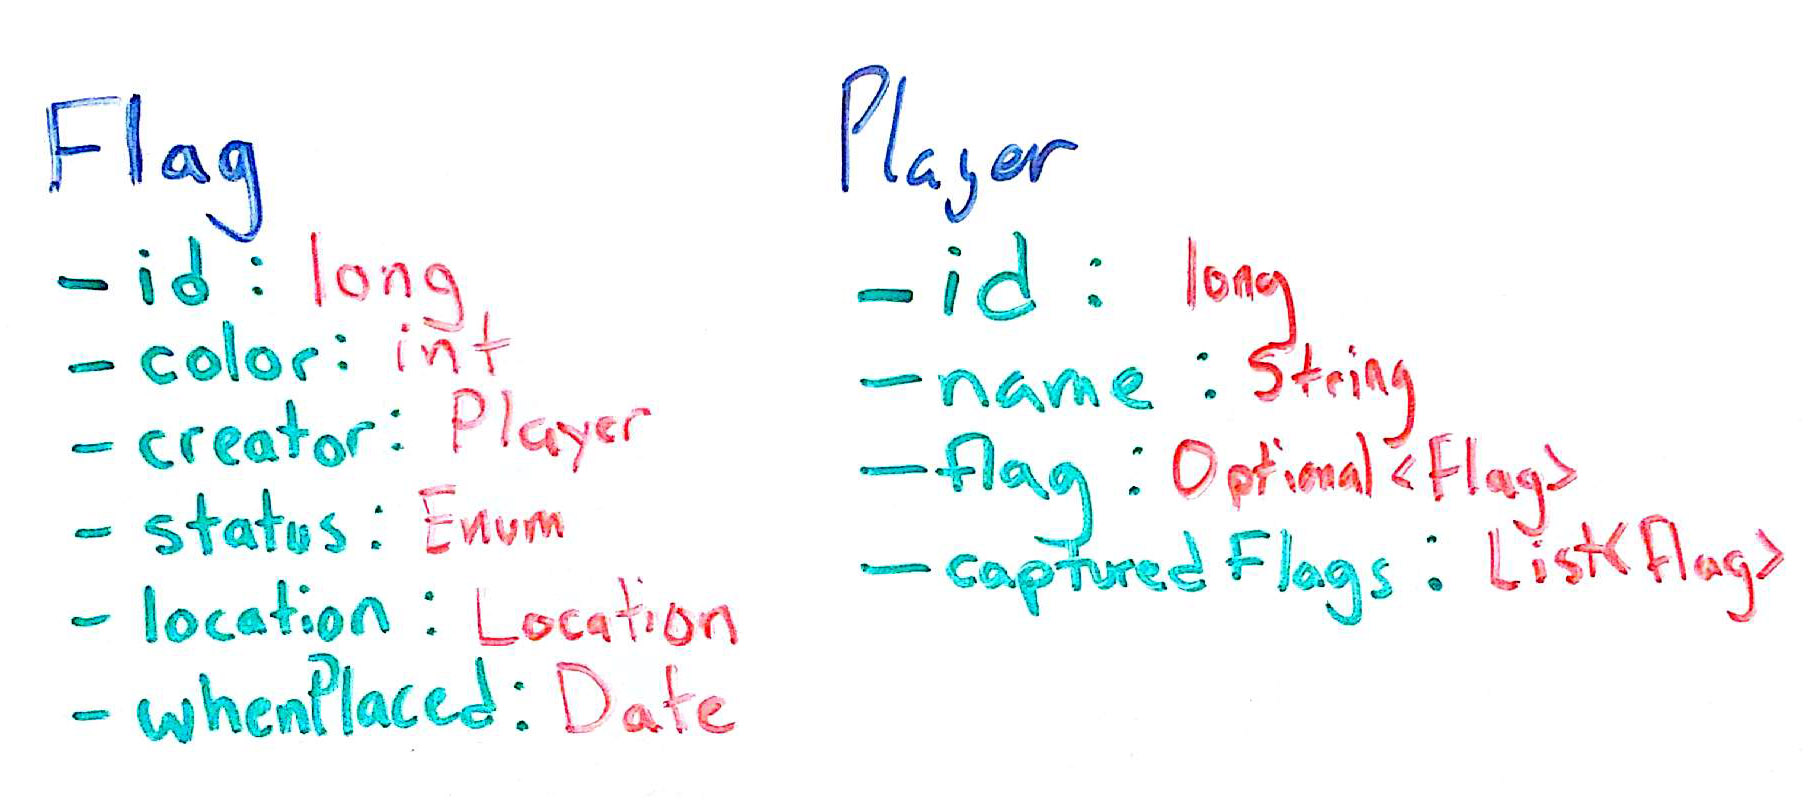 Flag
- id : long
- color : int
- creator : Player
- status : Enum
- location : Location
- whenPlaced : Date
Player
- id : long
- name : String
- flag : Optional<Flag>
- capturedFlags : List<Flag>